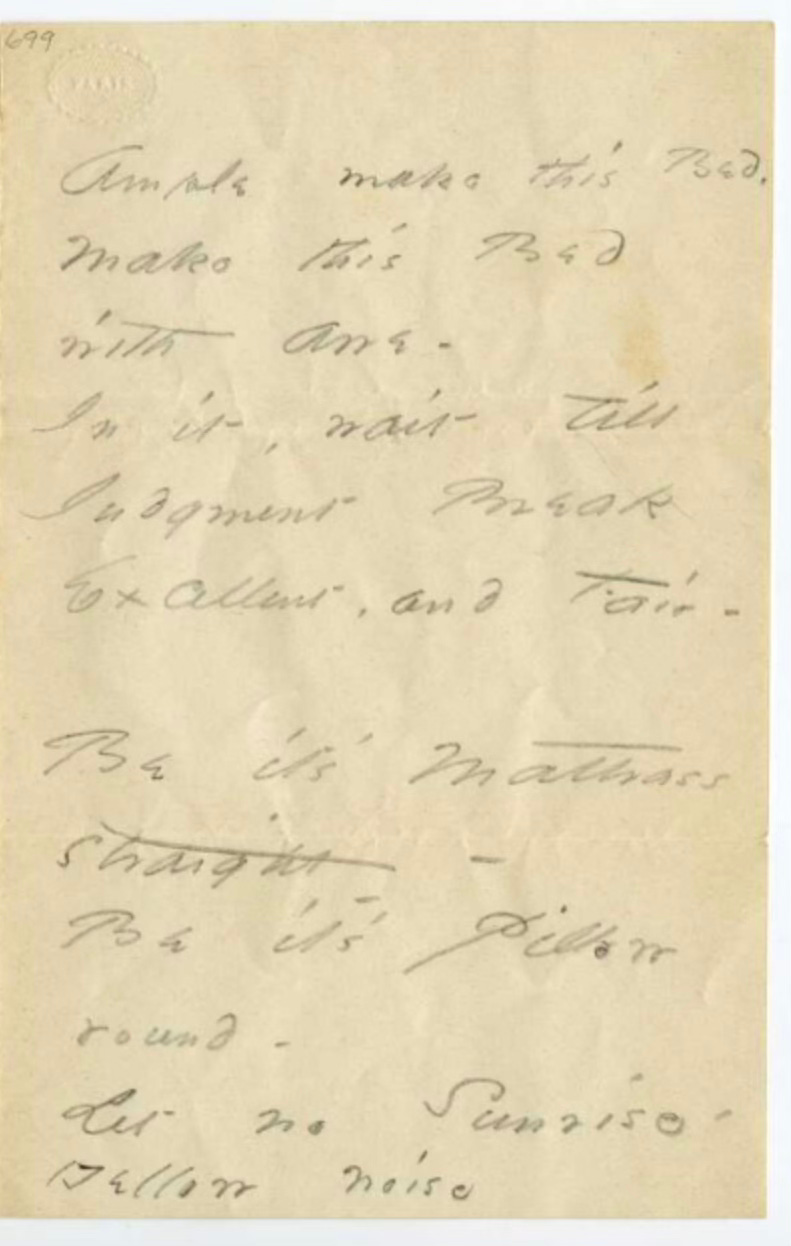 699
PARIS
Ample make this Bed.
Make this Bed
with Awe -
In it, wait till
Judgment Break
Excellent, and Fair -
Be it's Mattrass
straight -
Be it's Pillow
round -
Let no Sunrise'
Yellow noise